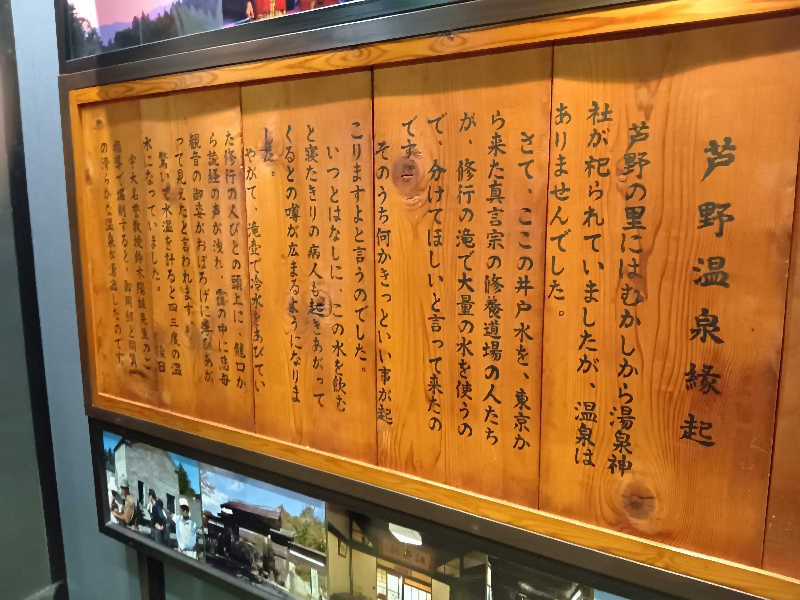 芦野温泉縁起
芦野の里にはむかしから湯泉神
社が祀られていましたが、温泉は
ありませんでした。
さて、ここの井戸水を、東京か
ら来た真言宗の修養道場の人たち
が、修行の滝で大量の水を使うの
で、分けてほしいと言って来たの
です。
そのうち何かきっといい事が起
こりますよと言うのでした。
いつとはなしに、この水を飲む
と寝たきりの病人も起きあがって
くるとの噂が広まるようになりま
した。
やがて、滝壺で冷水をあびてい
た修行の人びとの頭上に、龍口か
ら読経の声が洩れ、霞の中に慈母
観音の御姿がおぼろげに浮びあが
って見えたと言われます。後日
驚いて水温を計ると四三度の温
水になっていました。
の滑らかな温泉が湧出したのです。